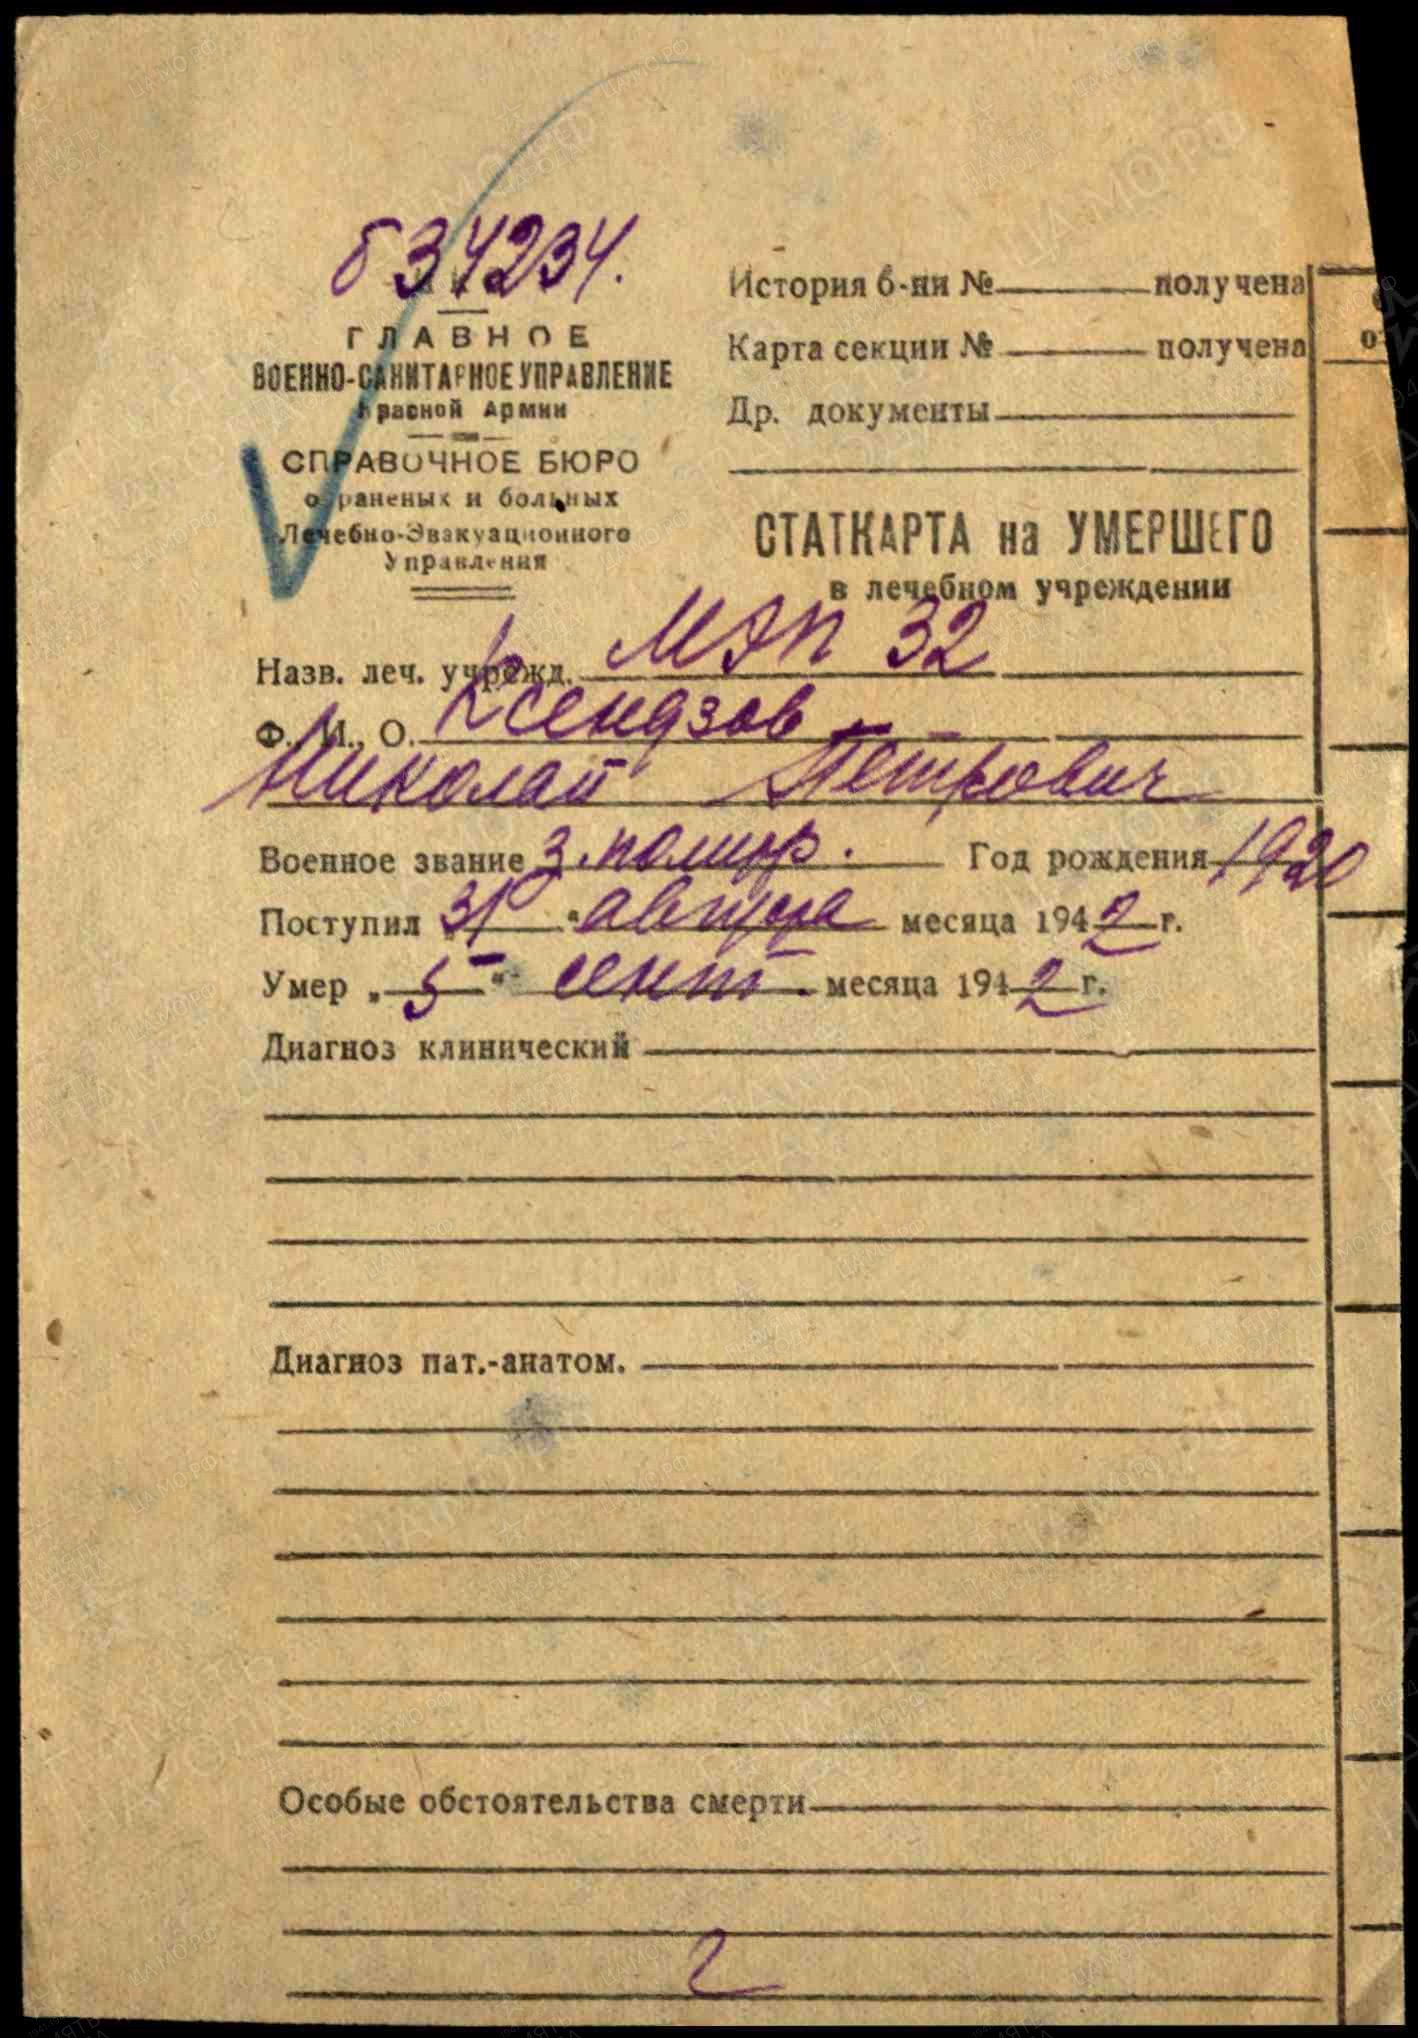 634234.
ГЛАВНОЕ
ВОЕННО-САНИТАРНОЕ УПРАВЛЕНИЕ
Красной Армии
СПРАВОЧНОЕ БЮРО
о раненых и больных
Лечебно-Эвакуационного
Управления
История б-ни № получена
Карта секции № получена
Др. документы
СТАТКАРТА на УМЕРШЕГО
в лечебном учреждении
Назв. леч. учрежд. МЭП 32
Ф., И., О. Ксендзов
Николай Петрович
Военное звание з. политр. Год рождения 1920
Поступил "31" августа месяца 1942 г.
Умер „5" сент. месяца 1942 г.
Диагноз клинический
Диагноз пат.-анатом.
Особые обстоятельства смерти
2